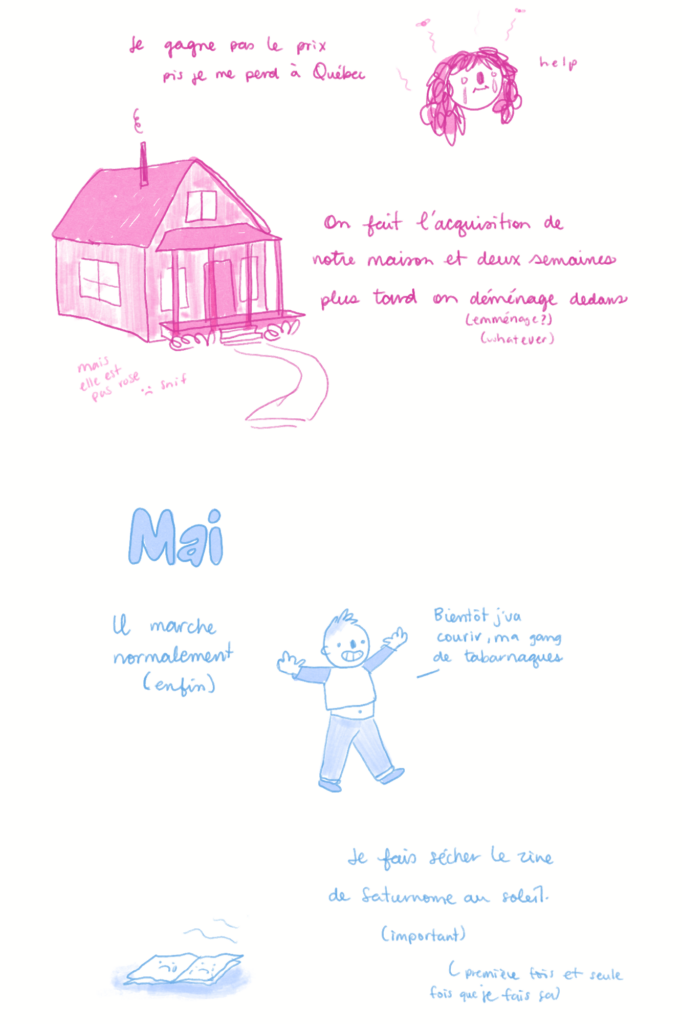 Je gagne pas le prix
pis je me perd à Québec
help
On fait l'acquisition de
notre maison et deux semaines
plus tard on déménage dedans
(emménage?)
(whatever)
mais
elle est
pas rose
:( snif
Mai
Il marche
normalement
(enfin)
Bientôt j'va
courir, ma gang
de tabarnaques
Je fais sécher le zine
de Saturnome au soleil.
(important)
(première fois et seule
fois que je fais ça)